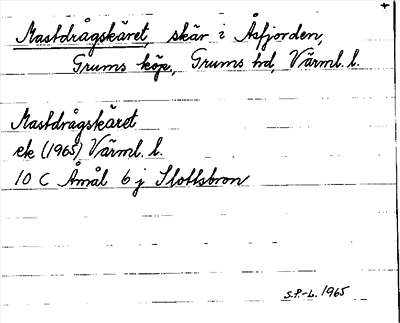 +
Mastdrågskäret, skär i Åsfjorden,
Grums köp., Grums hd, Värml. l.
Mastdrågskäret
ek (1965) Värml. l.
10 C Åmål 6 j Slottsbron
S.P.-L. 1965